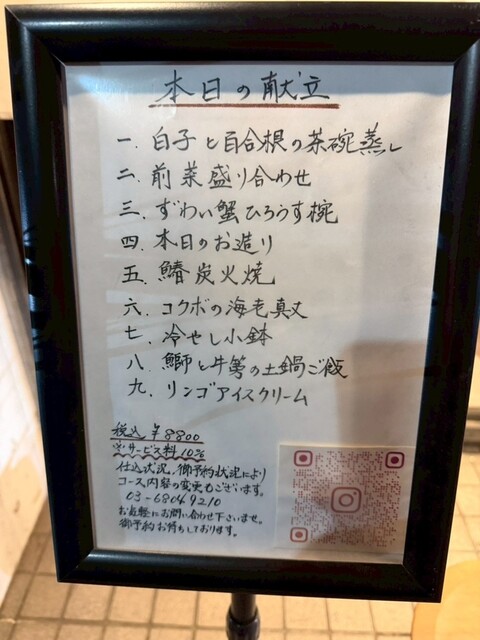 本日の献立
一. 白子と百合根の茶碗蒸し
二. 前菜盛り合わせ
三. ずわい蟹ひろうす椀
四. 本日のお造り
五. 鰆炭火焼
六. コクボの海老真丈
七. 冷やし小鉢
八. 鰤と牛蒡の土鍋ご飯
九. リンゴアイスクリーム
税込 ¥8800
※サービス料10%
仕込状況。御予約状況により
コース内容の変更もございます。
03-6804-9210
お気軽にお問い合わせ下さいませ。
御予約お待ちしております。